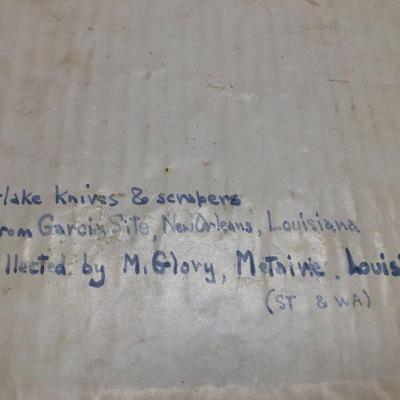 flake knives & scrapers
from Garcia Site, New Orleans, Louisiana
llected by M. Glory, Metairie, Louisi
(ST & WA)